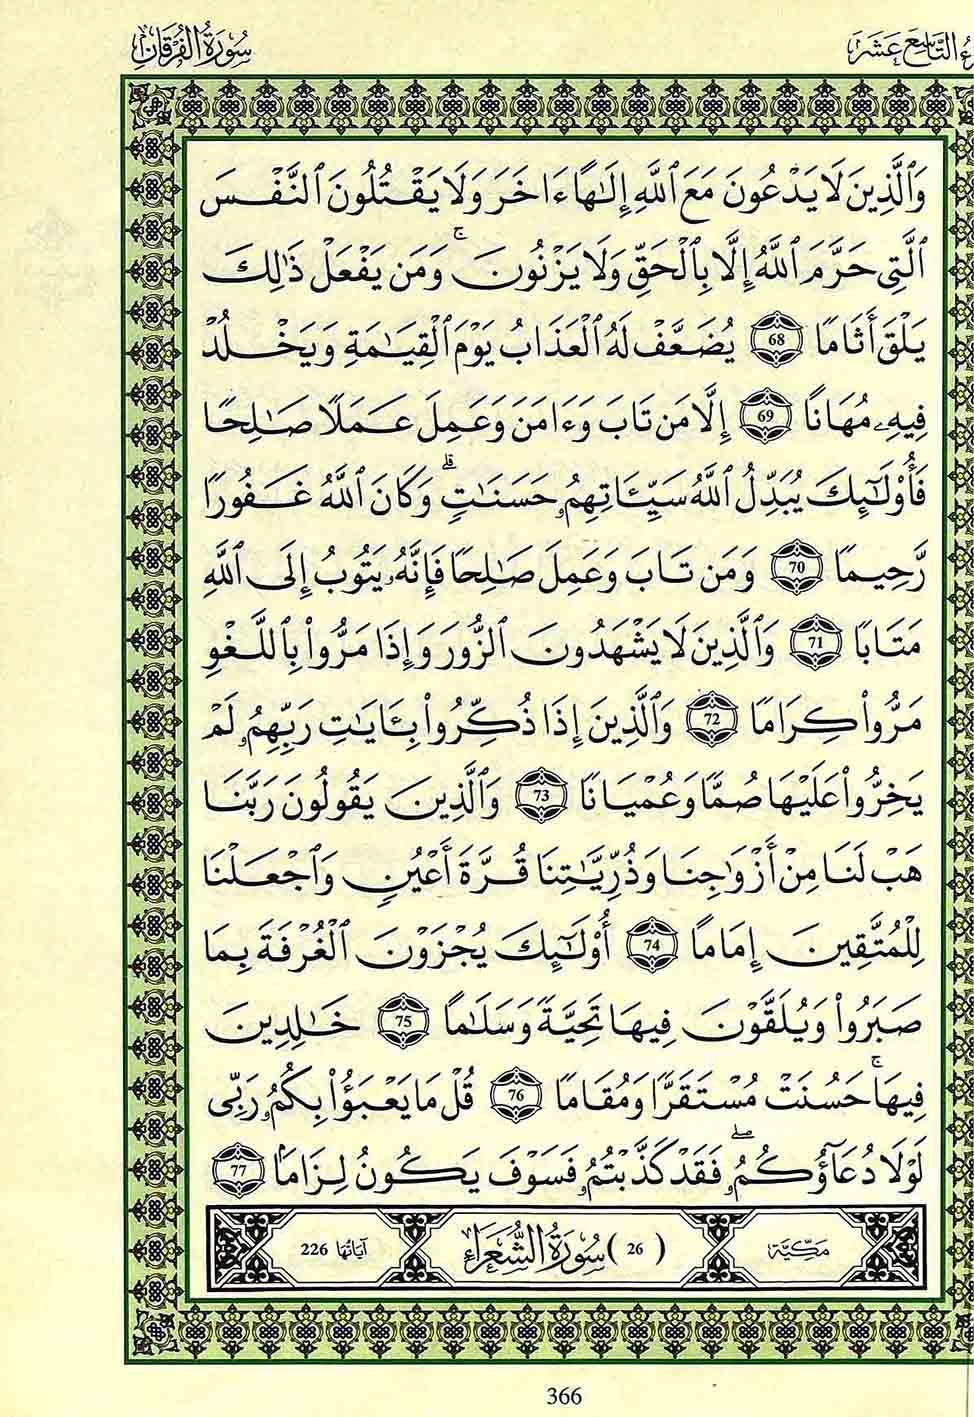 سُورَةُ الْفُرْقَانِ
التَّاسِعَ عَشَرَ
وَٱلَّذِينَ لَا يَدْعُونَ مَعَ ٱللَّهِ إِلَٰهًا ءَاخَرَ وَلَا يَقْتُلُونَ ٱلنَّفْسَ
ٱلَّتِى حَرَّمَ ٱللَّهُ إِلَّا بِٱلْحَقِّ وَلَا يَزْنُونَ ۚ وَمَن يَفْعَلْ ذَٰلِكَ
يَلْقَ أَثَامًا 68 يُضَعَّفْ لَهُ ٱلْعَذَابُ يَوْمَ ٱلْقِيَٰمَةِ وَيَخْلُدْ
فِيهِۦ مُهَانًا 69 إِلَّا مَن تَابَ وَءَامَنَ وَعَمِلَ عَمَلًا صَٰلِحًا
فَأُو۟لَٰٓئِكَ يُبَدِّلُ ٱللَّهُ سَيِّـَٔاتِهِمُۥ حَسَنَٰتٍ ۗ وَكَانَ ٱللَّهُ غَفُورًا
رَّحِيمًا 70 وَمَن تَابَ وَعَمِلَ صَٰلِحًا فَإِنَّهُۥ يَتُوبُ إِلَى ٱللَّهِ
مَتَابًا 71 وَٱلَّذِينَ لَا يَشْهَدُونَ ٱلزُّورَ وَإِذَا مَرُّوا۟ بِٱللَّغْوِ
مَرُّوا۟ كِرَامًا 72 وَٱلَّذِينَ إِذَا ذُكِّرُوا۟ بِـَٔايَٰتِ رَبِّهِمُۥ لَمْ
يَخِرُّوا۟ عَلَيْهَا صُمًّا وَعُمْيَانًا 73 وَٱلَّذِينَ يَقُولُونَ رَبَّنَا
هَبْ لَنَا مِنْ أَزْوَٰجِنَا وَذُرِّيَّٰتِنَا قُرَّةَ أَعْيُنٍ وَٱجْعَلْنَا
لِلْمُتَّقِينَ إِمَامًا 74 أُو۟لَٰٓئِكَ يُجْزَوْنَ ٱلْغُرْفَةَ بِمَا
صَبَرُوا۟ وَيُلَقَّوْنَ فِيهَا تَحِيَّةً وَسَلَٰمًا 75 خَٰلِدِينَ
فِيهَا ۚ حَسُنَتْ مُسْتَقَرًّا وَمُقَامًا 76 قُلْ مَا يَعْبَؤُا۟ بِكُمُۥ رَبِّى
لَوْلَا دُعَآؤُكُمُۥ ۖ فَقَدْ كَذَّبْتُمُۥ فَسَوْفَ يَكُونُ لِزَامًا 77
مَكِّيَّة (26) سُورَةُ الشُّعَرَاءِ آيَاتُهَا 226
366